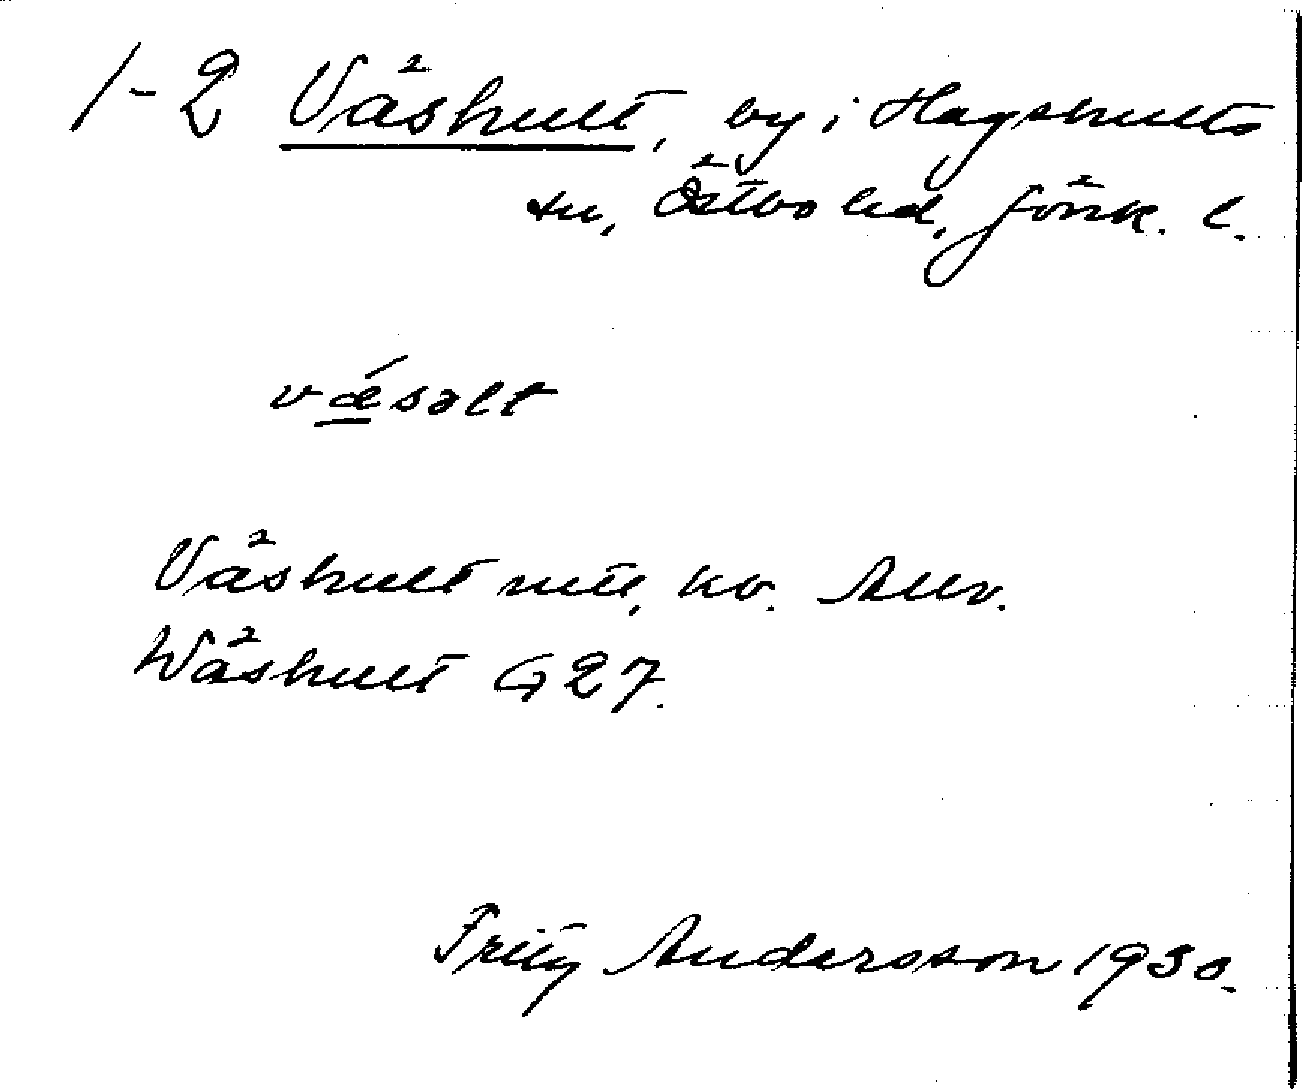 1-2 Väshult, by i Hagshults
sn, Östbo hd, Jönk. l.
vǽsəlt
Väshult mtl, kv. Allv.
Wäshult G 27.
Fritz Andersson 1930.